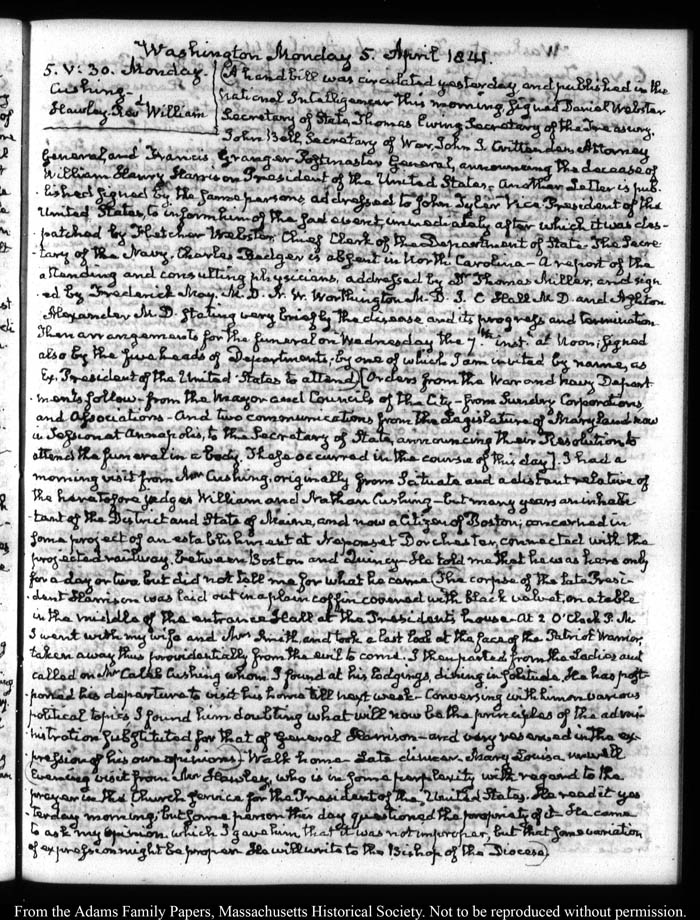 Washington Monday 5. April 1841.
5. V: 30. Monday.
Cushing- 
Hawley. Rev William
A hand bill was circulated yesterday and published in the
National Intelligencer this morning signed Daniel Webster
Secretary of State, Thomas Ewing Secretary of the Treasury.
John Bell, Secretary of War, John J. Crittenden Attorney
General, and Francis Granger Postmaster General, announcing the decease of
William Henry Harrison President of the United States, another Letter is pub-
lished signed by the same persons, addressed to John Tyler Vice President of the
United States, to inform him of the sad event, immediately after which it was des-
patched by Fletcher Webster, Chief Clerk of the Department of State. The Secre-
tary of the Navy, Charles Badger is absent in North Carolina- A report of the
attending and consulting physicians, addressed by Dr Thomas Miller, and sign
ed by Frederick May. M. D. N. W. Worthington M. D. J. C. Hall M. D and Ashton
Alexander M. D. stating very briefly the disease and its progress and termination
Then arrangements for the funeral on Wednesday the 7th inst. at Noon; signed
also by the five heads of Departments; by one of which I am invited by name, as
Ex President of the United States to attend [Orders from the War and Navy Depart
ments follow- from the Mayor and Councils of the City- from sundry Corporations
and Associations- And two communications from the Legislature of Maryland now
in Session at Annapolis, to the Secretary of State, announcing their Resolution to
attend the funeral in a body. These occurred in the course of this day]. I had a
morning visit from Mr Cushing, originally from Scituate and a distant relative of
the heretofore judges William and Nathan Cushing- but many years an inhabi
tant of the District and State of Maine, and now a Citizen of Boston; concerned in
some project of an establishment at Neponset Dorchester, connected with the
projected railway, between Boston and Quincy- He told me that he was here only
for a day or two but did not tell me for what he came (The corpse of the late Presi-
dent Harrison was laid out in a plain coffin covered with black velvet, on a table
in the middle of the entrance Hall at the President's house- At 2 O'Clock P. M
I went with my wife and Mrs Smith, and took a last look at the face of the Patriot Warrior,
taken away thus providentially from the evil to come. I then parted from the Ladies and
called on Mr Caleb Cushing whom I found at his lodgings, dining in solitude. He has post-
poned his departure to visit his home till next week- Conversing with him on various
political topics I found him doubting what will now be the principles of the admi-
nistration substituted for that of General Harrison- and very reserved in the ex-
pression of his own opinions) Walk home- Late dinner. Mary Louisa unwell
(Evening visit from Mr Hawley, who is in some perplexity with regard to the
prayer in the Church service for the President of the United States. He read it yes
terday morning, but some person this day questioned the propriety of it- He came
to ask my opinion. which I gave him that it was not improper, but that some variation
of expression might be proper- He will write to the Bishop of the Diocese)
From the Adams Family Papers, Massachusetts Historical Society. Not to be reproduced without permission